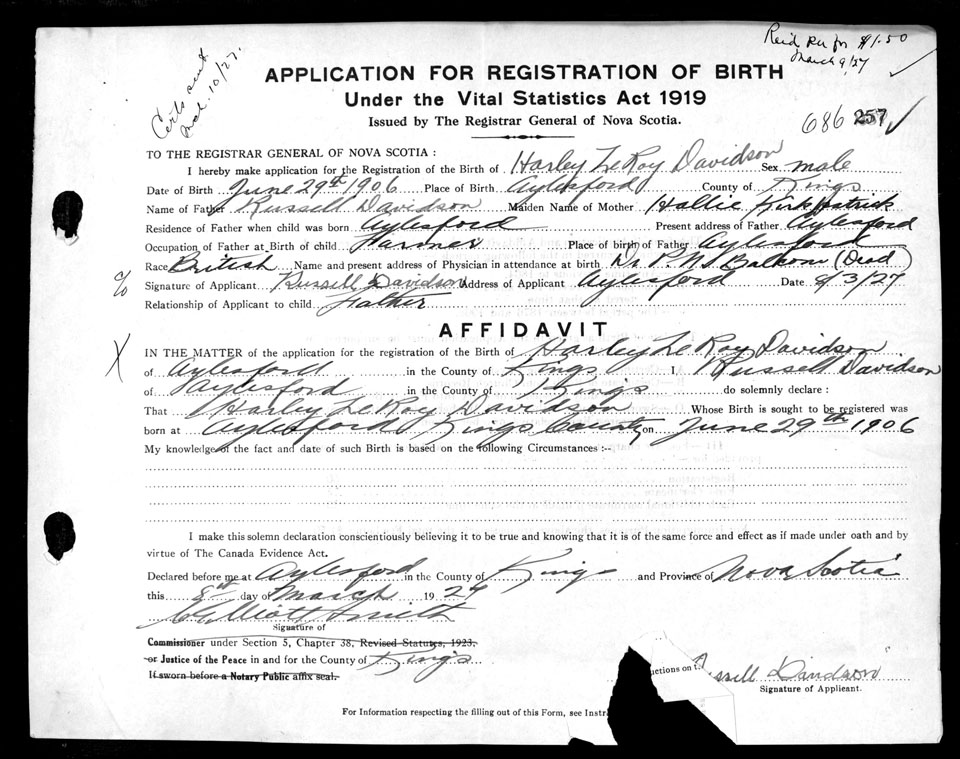 Certs sent
Mch. 10/27.
$1.50
March 9/27
APPLICATION FOR REGISTRATION OF BIRTH
Under the Vital Statistics Act 1919
Issued by The Registrar General of Nova Scotia.
686 257
TO THE REGISTRAR GENERAL OF NOVA SCOTIA :
I hereby make application for the Registration of the Birth of Harley LeRoy Davidson Sex male
Date of Birth June 29th 1906 Place of Birth Aylesford County of Kings
Name of Father Russell Davidson Maiden Name of Mother Hallie Kirkpatrick
Residence of Father when child was born Aylesford Present address of Father Aylesford
Occupation of Father at Birth of child Farmer Place of birth of Father Aylesford
Race British Name and present address of Physician in attendance at birth Dr. P. N. Balkom (Dead)
% Signature of Applicant Russell Davidson Address of Applicant Aylesford Date 8/3/27
Relationship of Applicant to child Father
AFFIDAVIT
X IN THE MATTER of the application for the registration of the Birth of Harley LeRoy Davidson
of Aylesford in the County of Kings I Russell Davidson
of Aylesford in the County of Kings do solemnly declare :
That Harley LeRoy Davidson Whose Birth is sought to be registered was
born at Aylesford Kings County on June 29th 1906
My knowledge of the fact and date of such Birth is based on the following Circumstances :--
I make this solemn declaration conscientiously believing it to be true and knowing that it is of the same force and effect as if made under oath and by
virtue of The Canada Evidence Act.
Declared before me at Aylesford in the County of Kings and Province of Nova Scotia
this 8th day of March 1927
Elliott Smith
Signature of
Commissioner under Section 5, Chapter 38, Revised Statutes, 1923.
or Justice of the Peace in and for the County of Kings
If sworn before a Notary Public affix seal.
uctions on t
ussell Davidson
Signature of Applicant.
For Information respecting the filling out of this Form, see Instr